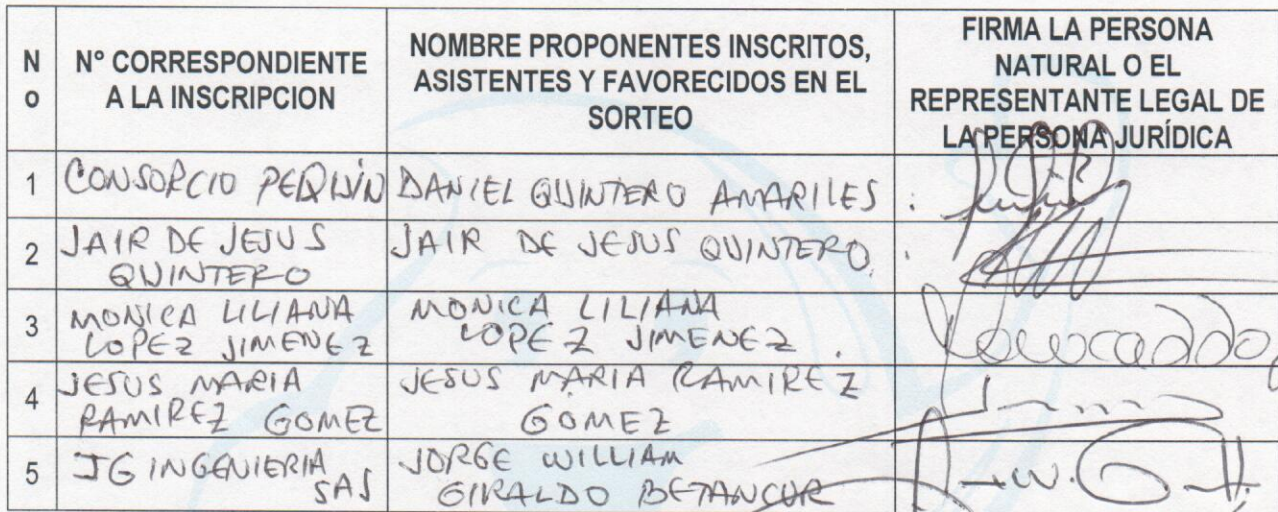 N
o
N° CORRESPONDIENTE
A LA INSCRIPCION
NOMBRE PROPONENTES INSCRITOS,
ASISTENTES Y FAVORECIDOS EN EL
SORTEO
FIRMA LA PERSONA
NATURAL O EL
REPRESENTANTE LEGAL DE
LA PERSONA JURÍDICA
1 CONSORCIO PEQUIN DANIEL QUINTERO AMARILES
2 JAIR DE JESUS
QUINTERO
JAIR DE JESUS QUINTERO.
3 MONICA LILIANA
LOPEZ JIMENEZ
MONICA LILIANA
LOPEZ JIMENEZ.
4 JESUS MARIA
RAMIREZ GOMEZ
JESUS MARIA RAMIREZ
GOMEZ
5 JG INGENIERIA
SAS
JORGE WILLIAM
GIRALDO BETANCUR